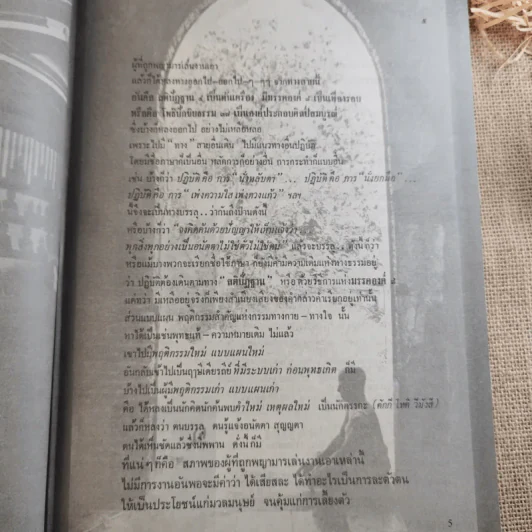 ผู้ที่ถูกพญามารเล่นงานเอา
แล้วก็ได้หลงทางออกไป-ออกไป-ๆ-ๆๆ จากทางสายนี้
อันคือ สติปัฏฐาน ๔ เป็นต้นเครื่อง มีมรรคองค์ ๘ เป็นเหลี่ยมรอบ
หรือคือ โพธิปักขิยธรรม ๓๗ เป็นองค์ประกอบศิลป์สมบูรณ์
ซึ่งบ้างก็หลงออกไป อย่างไม่เหลือหลอ
เพราะไปมี "ทาง" สายอื่นเดิน ไปมีแนวทางอื่นปฏิบัติ
โดยมีชื่อภาษาก็เป็นอื่น พฤติการก็อย่างอื่น การกระทำก็แบบอื่น
เช่น บ้างก็ว่า ปฏิบัติ คือ การ "นั่งหลับตา"... ปฏิบัติ คือ การ
ปฏิบัติ คือ การ "เพ่งความใส เพ่งดวงแก้ว" ฯลฯ
นี้จึงจะเป็นทางบรรลุ..ว่ากันถึงปานดังนี้
หรือบ้างก็ว่า "จงคิดค้นด้วยปัญญาให้เห็นแจ้งว่า
ทุกสิ่งทุกอย่างเป็นอนัตตาไม่ใช่ตัวไม่ใช่ตน" แล้วจะบรรลุ.. ดังนี้ก็ว่า
หรือแม้บางพวกจะเรียกชื่อใช้ภาษา ก็ยังมีตามความเดิมแห่งทางธรรมอยู่
ว่า ปฏิบัติต้องเดินตามทาง "สติปัฏฐาน" หรือ ด้วยวิธีการแห่งมรรคองค์ ๘
แต่ทว่า มีเหลืออยู่จริงก็เพียงสำเนียงเสียงของคำกล่าวคำเรียกอยู่เท่านั้น
ส่วนแบบแผน พฤติกรรมสำคัญแห่งกรรมทางกาย - ทางใจ นั้น
หาได้เป็นเช่นพุทธแท้ - ความหมายเดิม ไม่แล้ว
เขาไปมีพฤติกรรมใหม่ แบบแผนใหม่
อันกลับเข้าไปเป็นฤาษีเดียรถีย์ ที่มีระบบเก่า ก่อนพุทธเกิด ก็มี
บ้างไปเป็นผู้มีพฤติกรรมเก่า แบบแผนเก่า
คือ ได้หลงเป็นนักคิดนักค้นพบคำใหม่ เหตุผลใหม่ เป็นนักตรรกะ (ตักกี โหติ วีมังสี)
แล้วก็หลงว่า ตนบรรลุ ตนรู้แจ้งอนัตตา สุญญตา
ตนได้เห็นชัดแล้วซึ่งนิพพาน ดังนี้ ก็มี
ที่แน่ๆก็คือ สภาพของผู้ที่ถูกพญามารเล่นงานเอาเหล่านี้
ไม่มีการงานอันพอจะมีค่าว่า ได้เสียสละ ได้ทำอะไรเป็นการละตัวตน
ให้เป็นประโยชน์แก่มวลมนุษย์ จนคุ้มแก่การเลี้ยงตัว
5